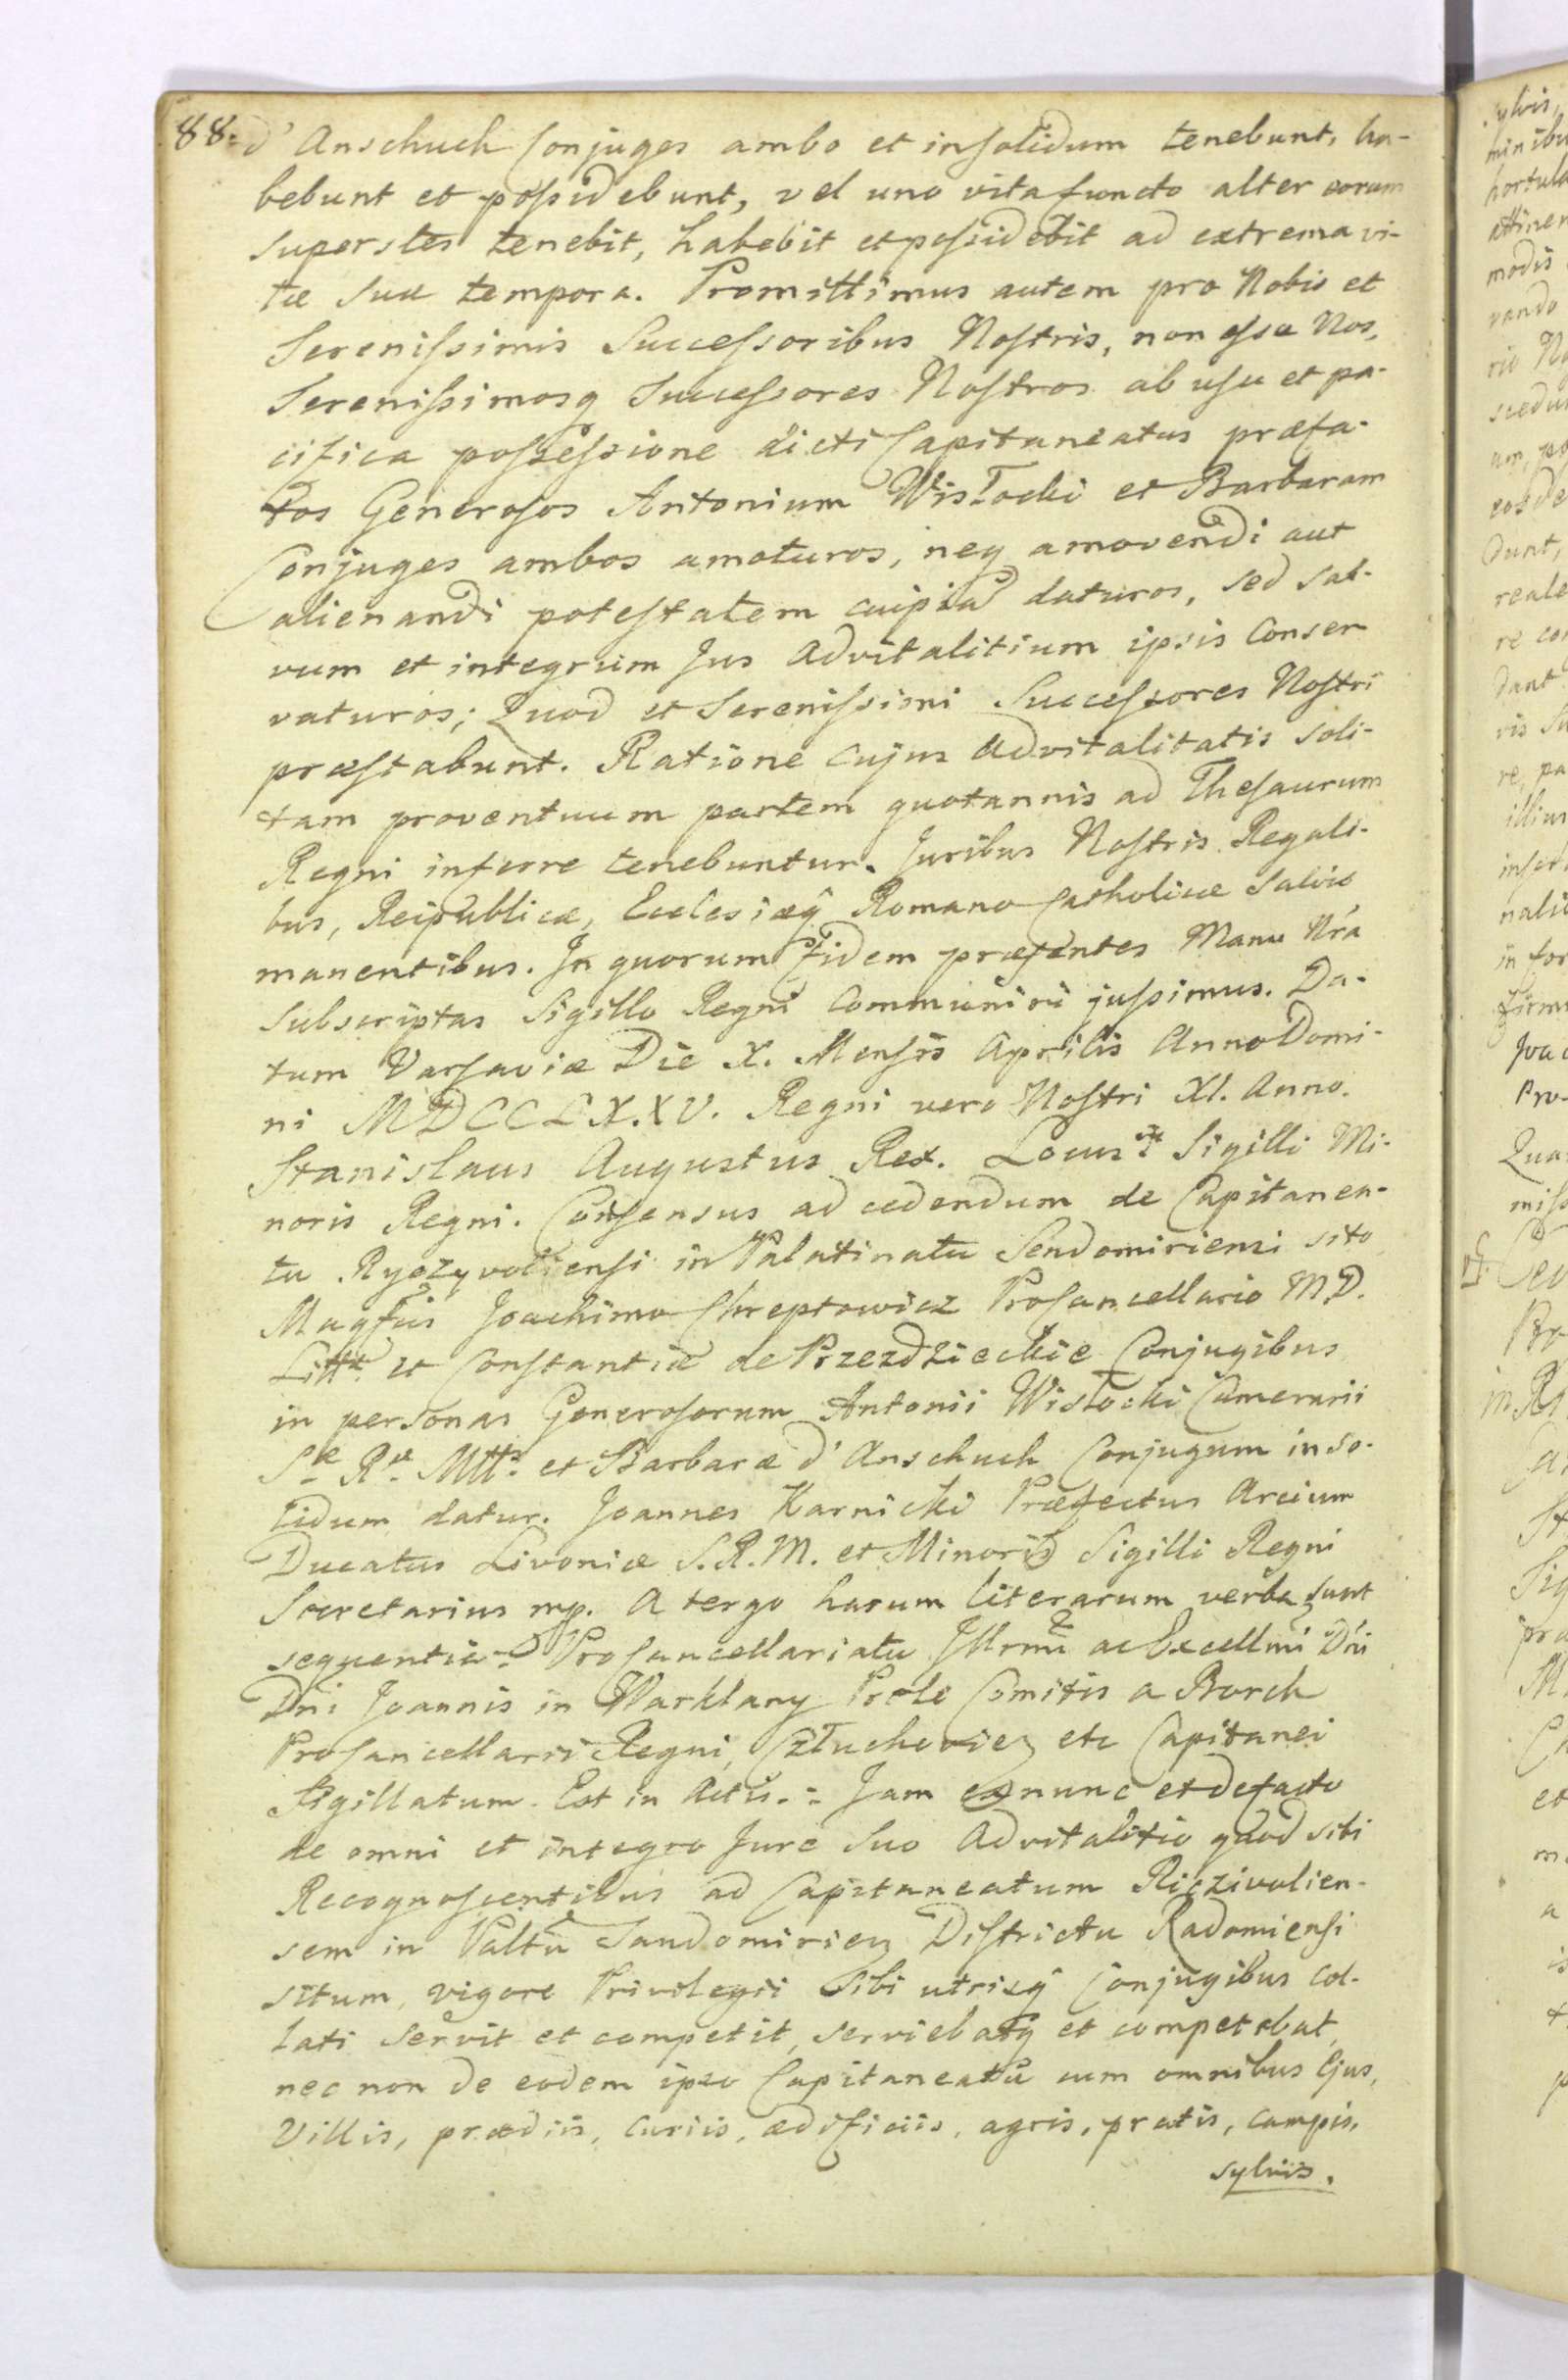 88. d'Anschuch Conjuges ambo et insolidum tenebunt, ha-
bebunt et possidebunt, vel uno vita functo alter eorum
superstes tenebit, habebit et possidebit ad extrema vi-
tæ suæ tempora. Promittimus autem pro Nobis et
Serenissimis Successoribus Nostris, non esse Nos,
Serenissimosq Successores Nostros ab usu et pa-
cifica possessione dicti Capitaneatus præfa-
tos Generosos Antonium Wisłocki et Barbaram
Conjuges ambos amoturos, neq amovendi aut
alienandi potestatem cuipiã daturos, sed sal-
vum et integrum Jus Advitalitium ipsis Conser
vaturos; Quod et Serenissimi Successores Nostri
præstabunt. Ratione cujus Advitalitatis soli-
tam proventuum partem quotannis ad Thesaurum
Regni inferre tenebuntur. Juribus Nostris Regali-
bus, Reipublicæ, Ecclesiæq Romano Catholicæ salvis
manentibus. In quorum fidem præsentes Manu Nrá
subscriptas Sigillo Regni Communiri jussimus. Da-
tum Varsaviæ Die X. Mensis Aprilis Anno Domi-
ni MDCCLXXV. Regni vero Nostri XI. Anno.
Stanislaus Augustus Rex. Locus Sigilli Mi-
noris Regni. Consensus ad cedendum de Capitanea-
tu Ryczyvoliensi in Palatinatu Sendomiriensi sito
Magfcis Joachimo Chreptowicz Procancellario M.D.
Litt. et Constantiæ de Przezdzieckie Conjugibus
in personas Generosorum Antonii Wisłocki Camerarii
Sæ Ræ Mttis et Barbaræ d'Anschuch Conjugum inso-
lidum datur. Joannes Karnicki Præfectus Arcium
Ducatus Livoniæ S.R.M. et Minoris Sigilli Regni
Secretarius mp. A tergo harum literarum verba sunt
sequentia. Procancellariatu Illrmi ac Excellmi Dni
Dni Joannis in Warklany Prele Comitis a Borch
Procancellarii Regni, Człuchovien etc Capitanei
Sigillatum. Est in Actis. Jam ex nunc et de facto
de omni et integro Jure suo Advitalitio quod sibi
Recognoscentibus ad Capitaneatum Riczivolien-
sem in Palttu Sandomirien Districtu Radomiensi
situm, vigore Privilegii sibi utrisq Conjugibus col-
lati servit et competit, serviebatq et competebat,
nec non de eodem ipso Capitaneatu cum omnibus Ejus,
Villis, prædiis, curiis, ædificiis, agris, pratis, campis,
sylvis.